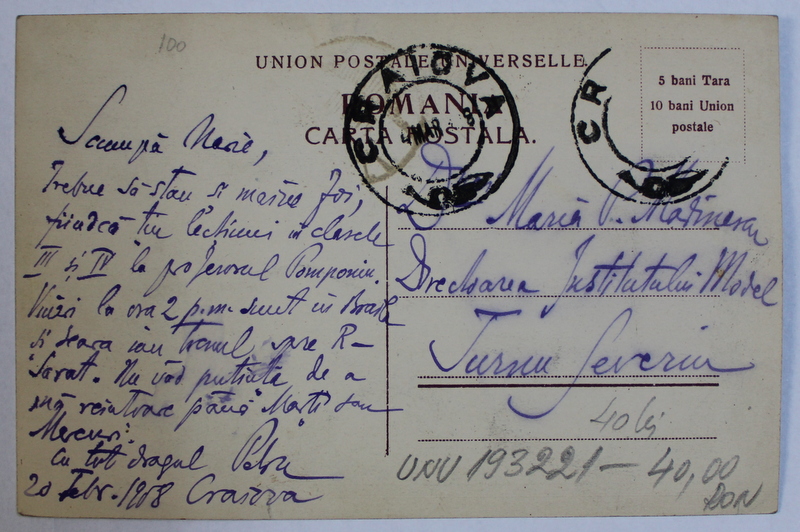 100
UNION POSTALE UNIVERSELLE.
ROMANIA
CARTA POSTALA.
5 bani Tara
10 bani Union
postale
CRAIOVA
MAR
CR
Scumpă Marie,
Trebue să stau și mâine Joi,
fiindcă țiu lecțiuni in clasele
III și IV la profesorul Pomponiu.
Vineri la ora 2 p.m. sunt in Braila
și seara iau trenul spre R-
Sărat. Nu văd putința de a
mă reintoarce până Marti sau
Mercuri.
Cu tot dragul Petru
20 Febr. 1908 Craiova
Maria P.
Directoarea Institutului Model
Turnu Severin
40 lei
UNV 193221 - 40,00
RON